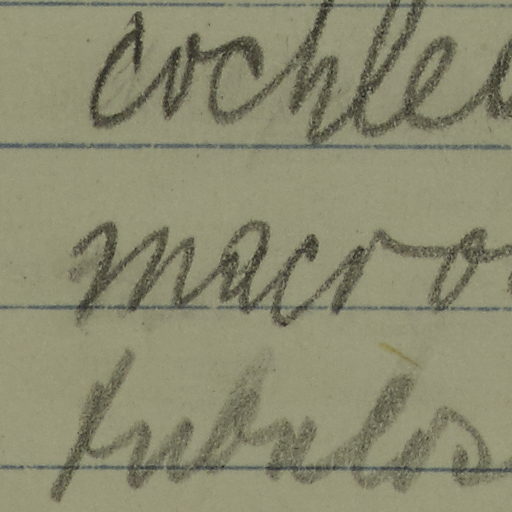 cochle
macro
tubulos